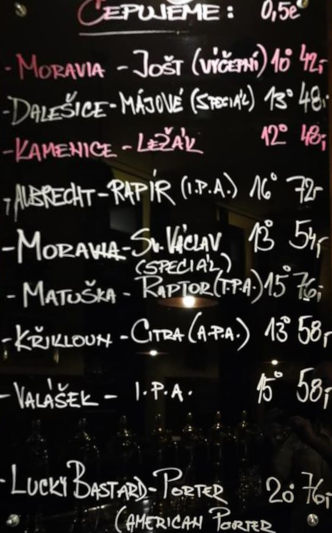 ČEPUJEME: 0,5ℓ
- MORAVIA - JOŠT (VÝČEPNÍ) 10° 42,-
- DALEŠICE - MÁJOVÉ (SPECIÁL) 13° 48,-
- KAMENICE - LEŽÁK 12° 48,-
- ALBRECHT - RAPÍR (I.P.A.) 16° 72,-
- MORAVIA - SV. VÁCLAV 13° 54,-
(SPECIÁL)
- MATUŠKA - RAPTOR (I.P.A.) 15° 76,-
- KŘIKLOUN - CITRA (A.P.A.) 13° 58,-
- VALÁŠEK - I.P.A. 15° 58,-
- LUCKY BASTARD - PORTER 20° 76,-
(AMERICAN PORTER